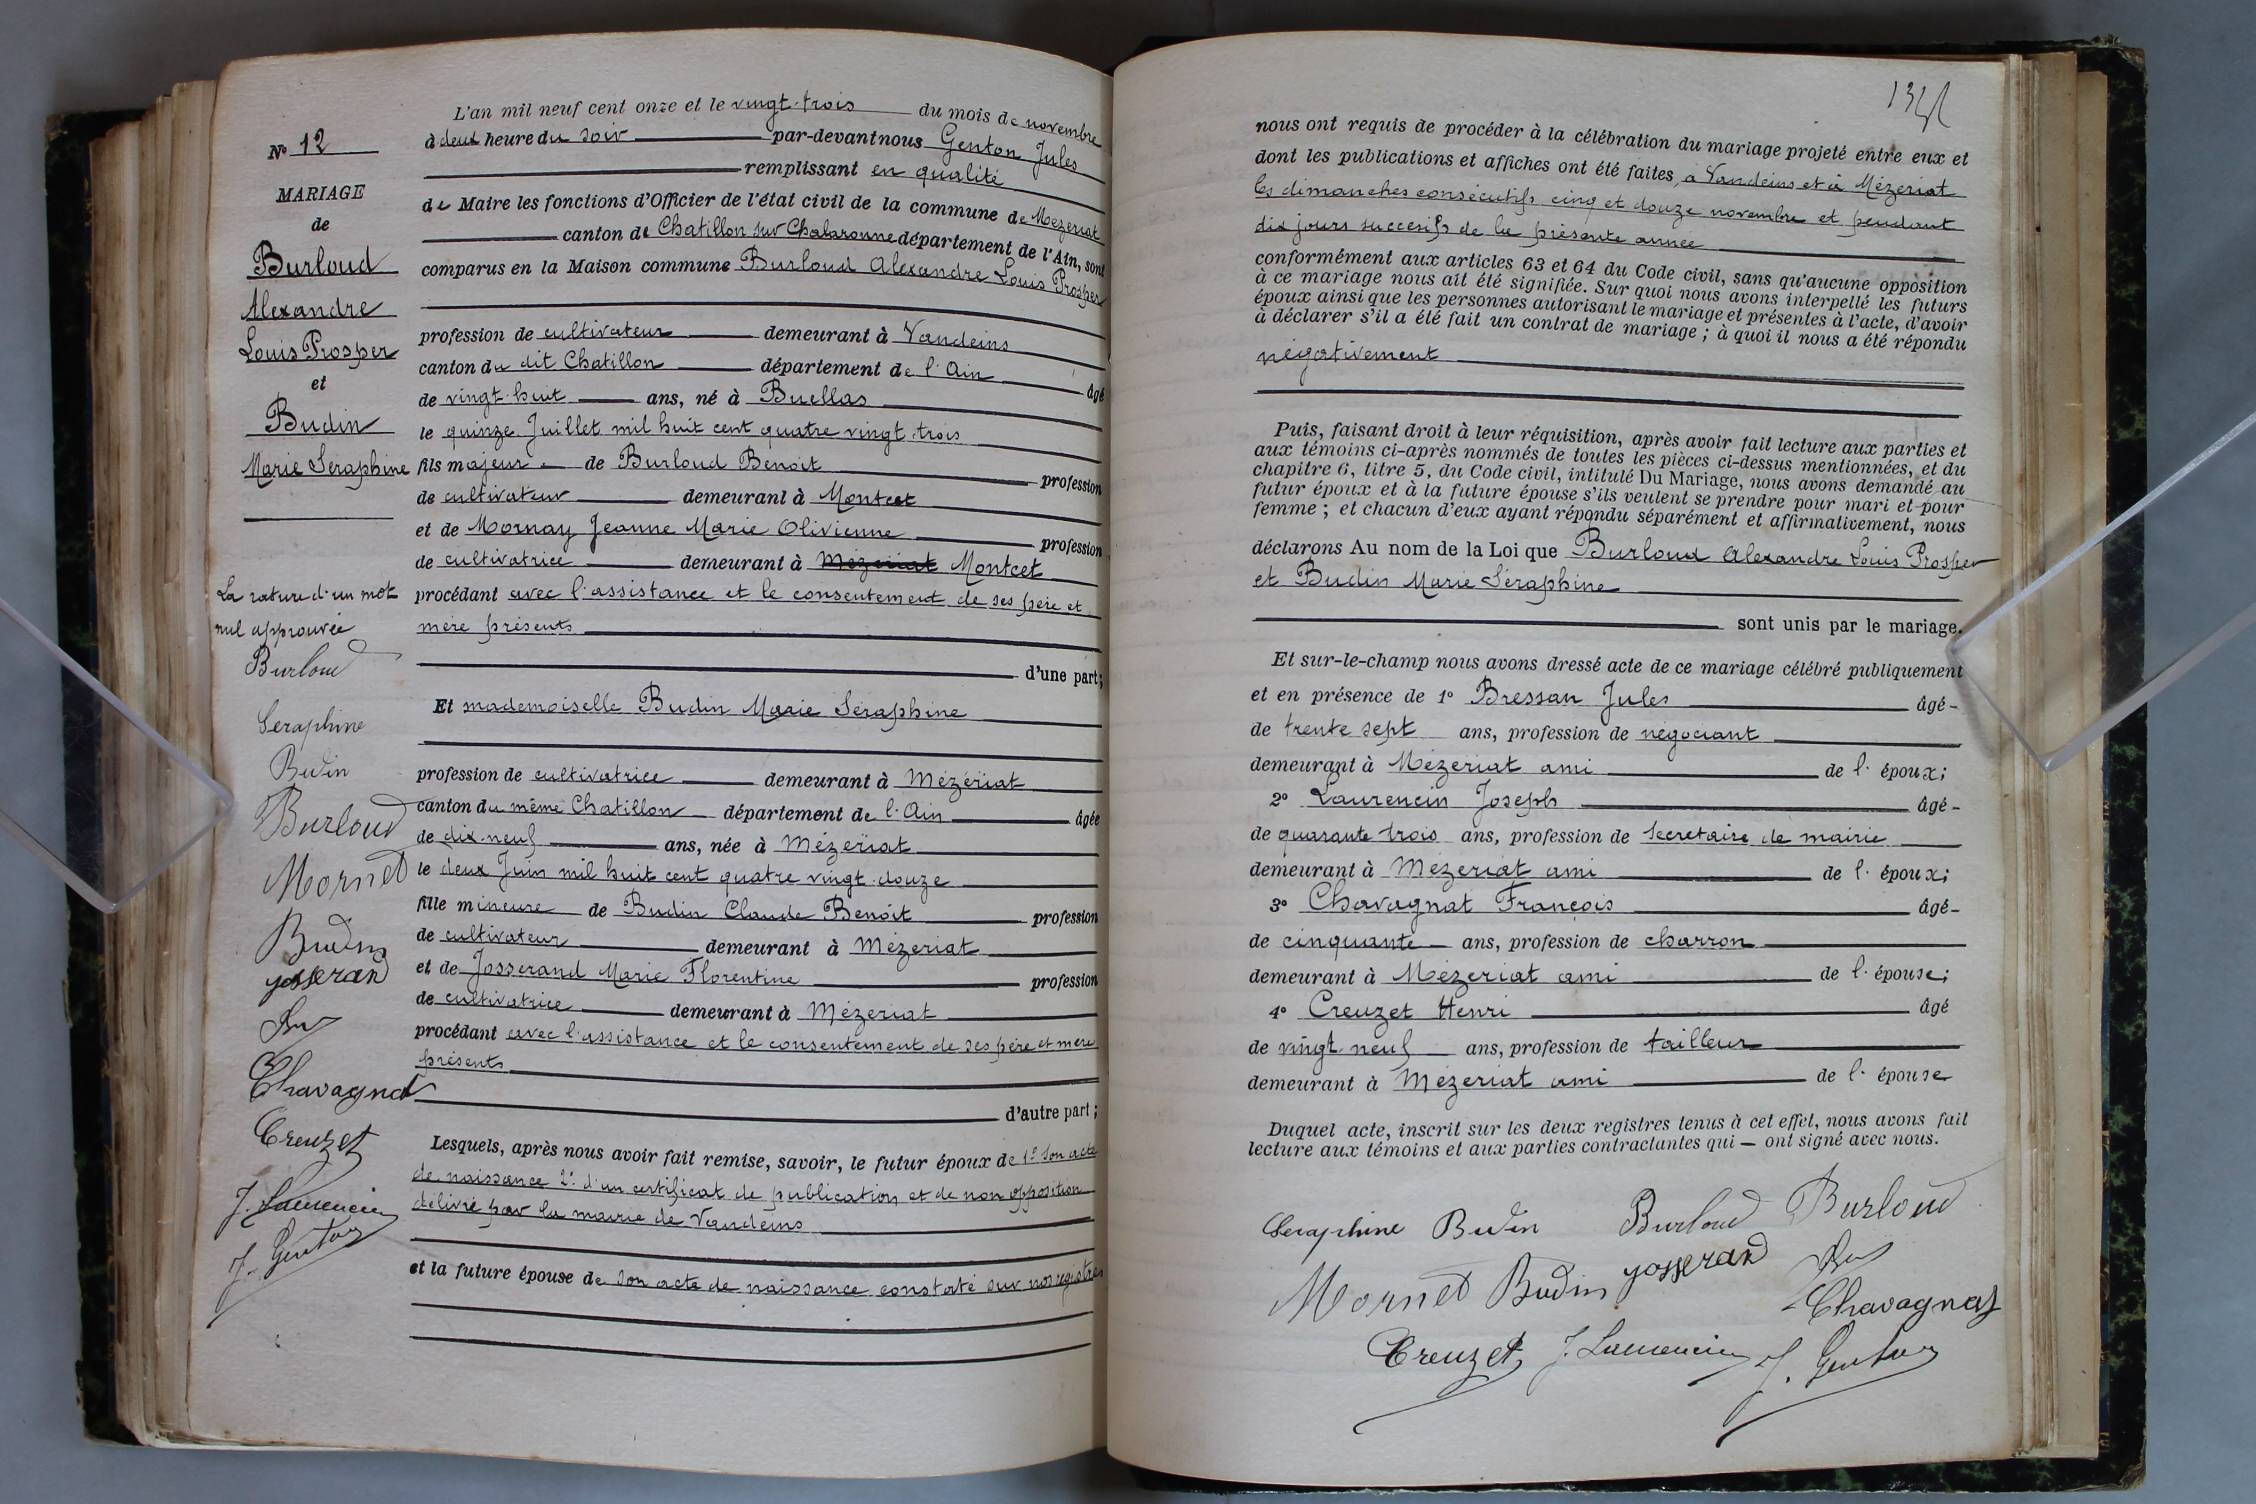 N° 12
MARIAGE
de
Burloud
Alexandre
Louis Prosper
et
Budin
Marie Seraphine
La rature d'un mot
nul approuvée
Burloud
Seraphine
Budin
Burloud
Mornet
Budin
Josserand
Chavagnat
Creuzet
J. Laurencin
J. Genton
L'an mil neuf cent onze et le vingt-trois du mois de novembre
à deux heure du soir par-devant nous Genton Jules
remplissant en qualité
de Maire les fonctions d'Officier de l'état civil de la commune de Mézeriat
canton de Chatillon sur Chalaronne département de l'Ain, sont
comparus en la Maison commune Burloud Alexandre Louis Prosper
profession de cultivateur demeurant à Vandeins
canton du dit Chatillon département de l'Ain âgé
de vingt-huit ans, né à Buellas
le quinze Juillet mil huit cent quatre vingt-trois
fils majeur de Burloud Benoit profession
de cultivateur demeurant à Montcet
et de Mornay Jeanne Marie Olivienne profession
de cultivatrice demeurant à Mézeriat Montcet
procédant avec l'assistance et le consentement de ses père et
mère présents
d'une part;
Et mademoiselle Budin Marie Séraphine
profession de cultivatrice demeurant à Mézériat
canton du même Chatillon département de l'Ain âgée
de dix-neuf ans, née à Mézériat
le deux Juin mil huit cent quatre vingt-douze
fille mineure de Budin Claude Benoit profession
de cultivateur demeurant à Mézeriat
et de Josserand Marie Florentine profession
de cultivatrice demeurant à Mézeriat
procédant avec l'assistance et le consentement de ses père et mère
présents
d'autre part;
Lesquels, après nous avoir fait remise, savoir, le futur époux de 1° son acte
de naissance 2° d'un certificat de publication et de non opposition
délivré par la mairie de Vandeins
et la future épouse de son acte de naissance constaté sur nos registres
nous ont requis de procéder à la célébration du mariage projeté entre eux et
dont les publications et affiches ont été faites, à Vandeins et à Mézeriat
les dimanches consécutifs cinq et douze novembre et pendant
dix jours succesifs de la présente année
conformément aux articles 63 et 64 du Code civil, sans qu'aucune opposition
à ce mariage nous ait été signifiée. Sur quoi nous avons interpellé les futurs
époux ainsi que les personnes autorisant le mariage et présentes à l'acte, d'avoir
à déclarer s'il a été fait un contrat de mariage; à quoi il nous a été répondu
négativement
Puis, faisant droit à leur réquisition, après avoir fait lecture aux parties et
aux témoins ci-après nommés de toutes les pièces ci-dessus mentionnées, et du
chapitre 6, titre 5, du Code civil, intitulé Du Mariage, nous avons demandé au
futur époux et à la future épouse s'ils veulent se prendre pour mari et pour
femme; et chacun d'eux ayant répondu séparément et affirmativement, nous
déclarons Au nom de la Loi que Burloud Alexandre Louis Prosper
et Budin Marie Séraphine
sont unis par le mariage.
Et sur-le-champ nous avons dressé acte de ce mariage célébré publiquement
et en présence de 1° Bressan Jules âgé
de trente sept ans, profession de négociant
demeurant à Mézeriat ami de l'époux;
2° Laurencin Joseph âgé
de quarante trois ans, profession de secrétaire de mairie
demeurant à Mézeriat ami de l'époux;
3° Chavagnat François âgé
de cinquante ans, profession de charron
demeurant à Mézeriat ami de l'épouse;
4° Creuzet Henri âgé
de vingt neuf ans, profession de tailleur
demeurant à Mézeriat ami de l'épouse
Duquel acte, inscrit sur les deux registres tenus à cet effet, nous avons fait
lecture aux témoins et aux parties contractantes qui — ont signé avec nous.
Seraphine Budin Burloud Burloud
Mornet Budin Josserand
Chavagnat
Creuzet J. Laurencin J. Genton